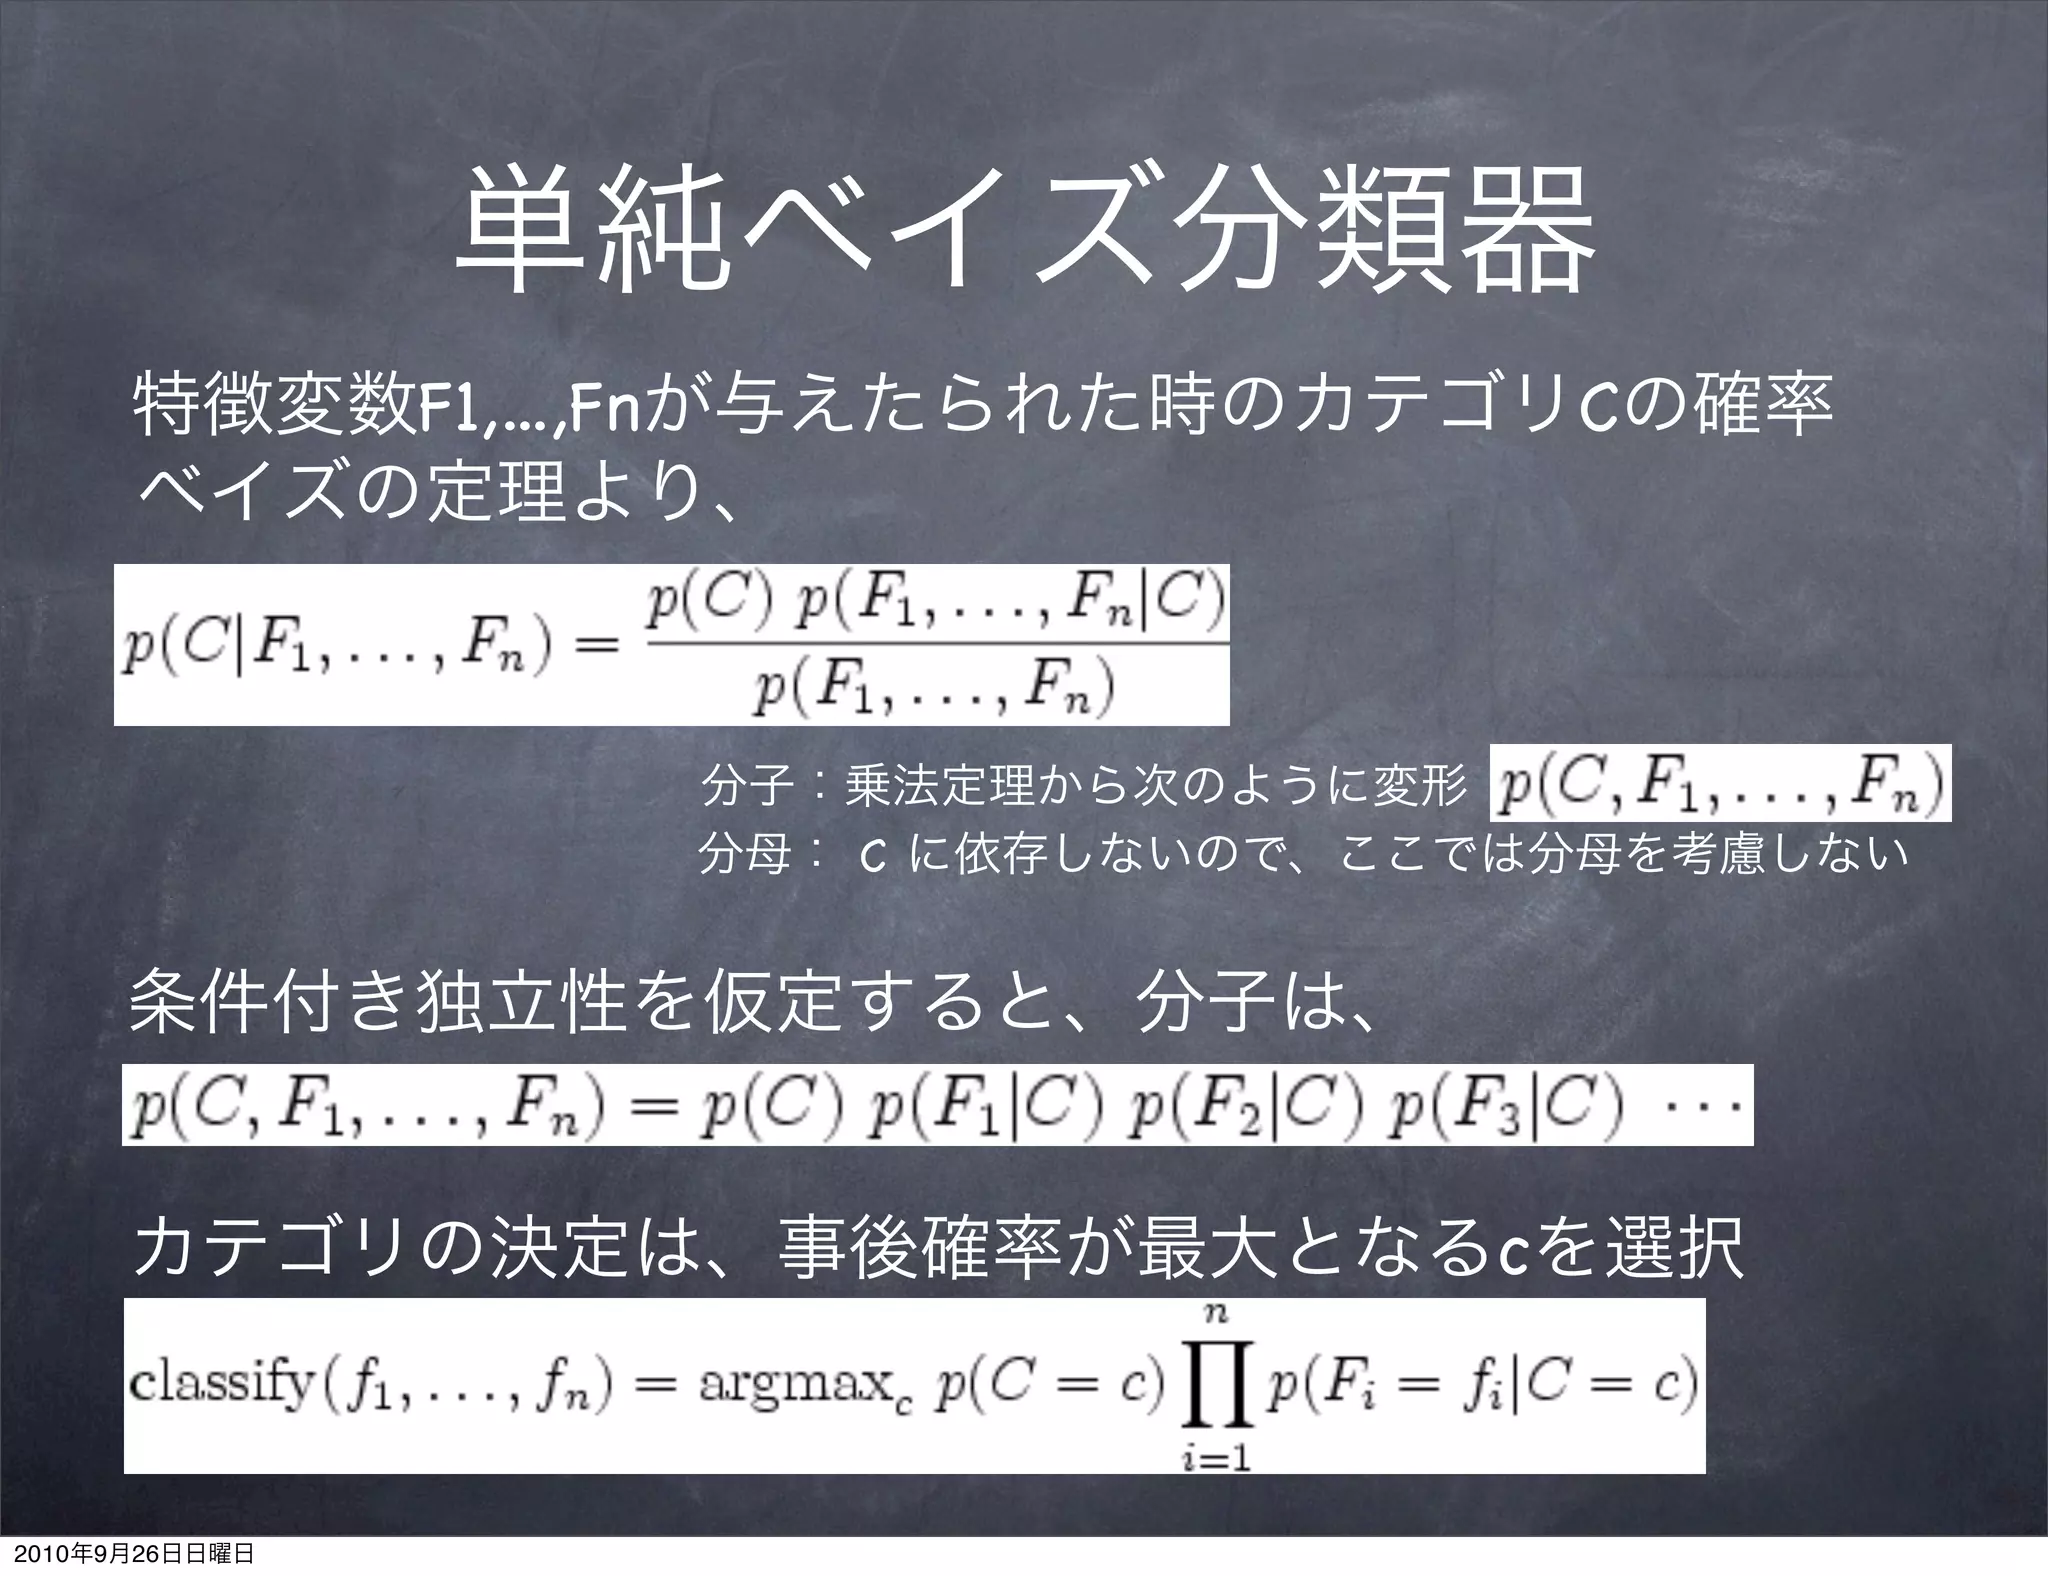 単純ベイズ分類器
特徴変数F1,...,Fnが与えたられた時のカテゴリCの確率
ベイズの定理より、
p(C|F₁, . . . , Fₙ) = p(C) p(F₁, . . . , Fₙ|C) / p(F₁, . . . , Fₙ)
分子：乗法定理から次のように変形 p(C, F₁, . . . , Fₙ)
分母： C に依存しないので、ここでは分母を考慮しない
条件付き独立性を仮定すると、分子は、
p(C, F₁, . . . , Fₙ) = p(C) p(F₁|C) p(F₂|C) p(F₃|C) ···
カテゴリの決定は、事後確率が最大となるcを選択
classify(f₁, . . . , fₙ) = argmax_c p(C = c) ∏_{i=1}^{n} p(Fᵢ = fᵢ|C = c)
2010年9月26日日曜日